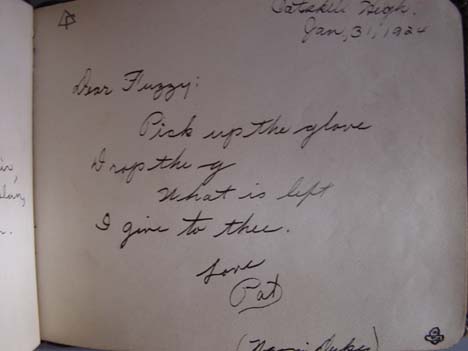 Catskill High.
Jan, 31, 1924
Dear Fuzzy:
Pick up the glove
Drop the g
What is left
I give to thee.
Love
Pat